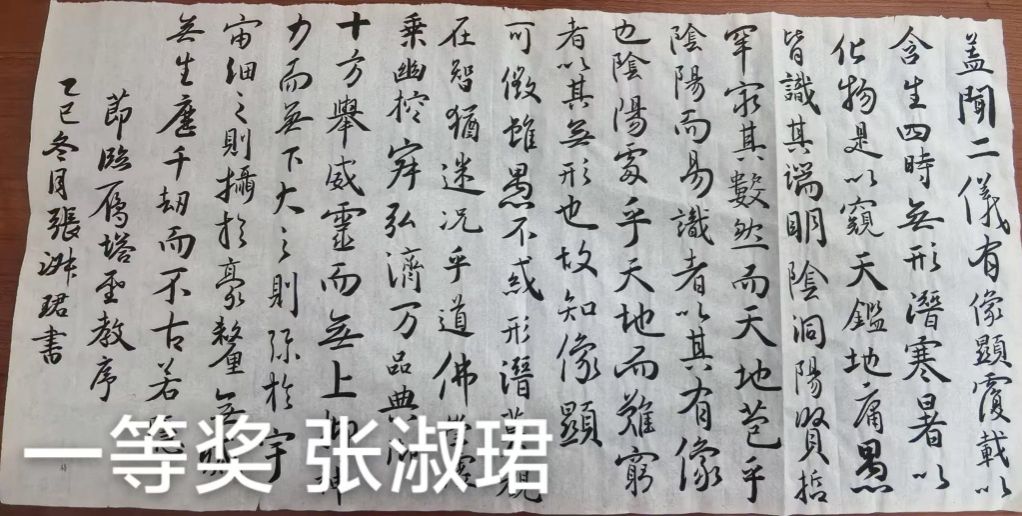 盖聞二儀有像顯覆載以
含生四時無形潛寒暑以
化物是以窺天鑑地庸愚
皆識其端明陰洞陽賢哲
罕窮其數然而天地苞乎
陰陽而易識者以其有像
也陰陽處乎天地而難窮
者以其無形也故知像顯
可徵雖愚不惑形潛莫覩
在智猶迷況乎道佛崇虛
乘幽控寂弘濟万品典御
十方舉威靈而無上抑神
力而無下大之則弥於宇
宙細之則攝於豪釐無滅
無生歷千劫而不古若隱
節臨雁塔聖教序
乙巳冬月張淑珺書
一等奖 张淑珺